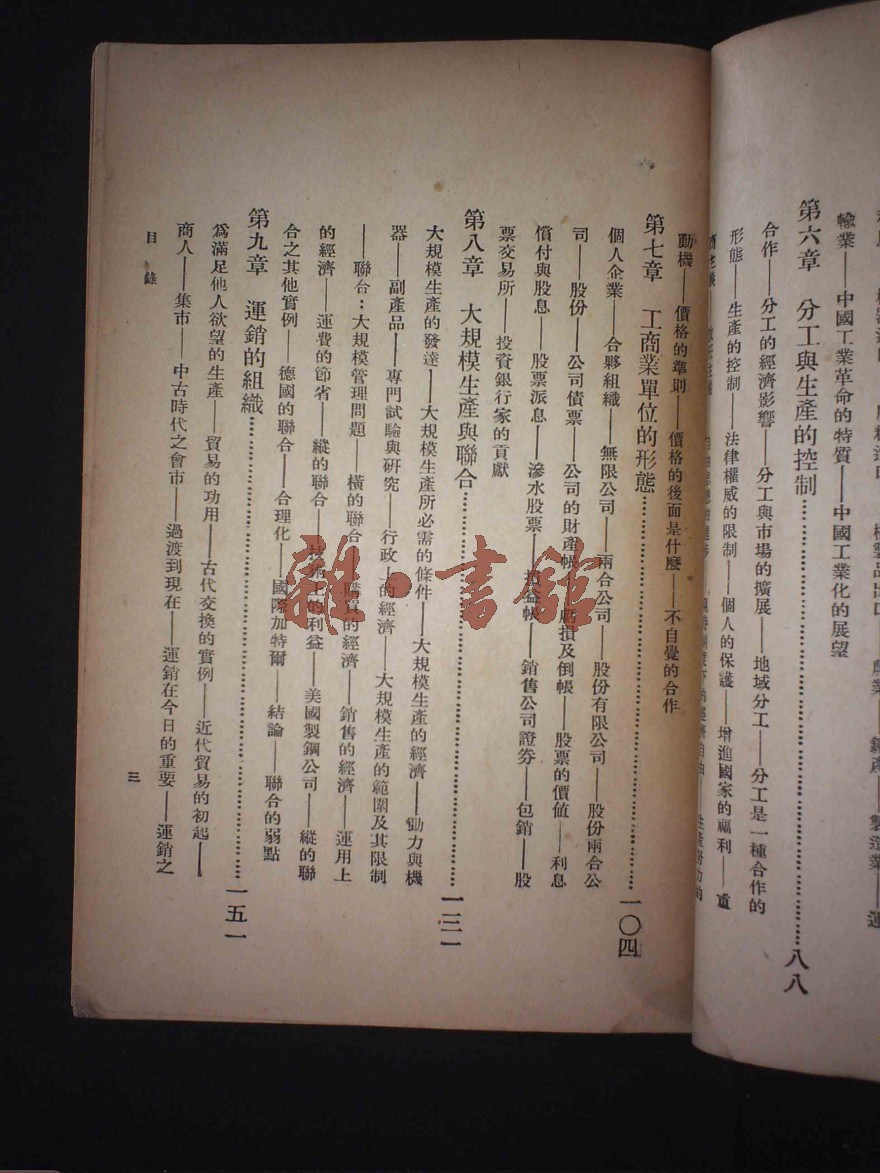 輸業——中國工業革命的特質——中國工業化的展望
第六章 分工與生產的控制……八八
合作——分工的經濟影響——分工與市場的擴展——地域分工——分工是一種合作的
形態——生產的控制——法律權威的限制——個人的保護——增進國家的福利——重
動機——價格的準則——價格的後面是什麼——不自覺的合作
第七章 工商業單位的形態……一〇四
個人企業——合夥組織——無限公司——兩合公司——股份有限公司——股份兩合公
司——股份——公司債票——公司的財產帳——虧損及倒帳——股票的價值——利息
償付與股息——股票派息——滲水股票——損益帳——銷售公司證券——包銷——股
票交易所——投資銀行家的貢獻
第八章 大規模生產與聯合……一三一
大規模生產的發達——大規模生產所必需的條件——大規模生產的經濟——動力與機
器——副產品——專門試驗與研究——行政上的經濟——大規模生產的範圍及其限制
——聯合：大規模管理問題——橫的聯合——購買的經濟——銷售的經濟——運用上
的經濟——運費的節省——縱的聯合——技術上的利益——美國製鋼公司——縱的聯
合之其他實例——德國的聯合——合理化——國際加特爾——結論——聯合的弱點
第九章 運銷的組織……一五一
爲滿足他人欲望的生產——貿易的功用——古代交換的實例——近代貿易的初起——
商人——集市——中古時代之會市——過渡到現在——運銷在今日的重要——運銷之
目錄
三
雜·書館